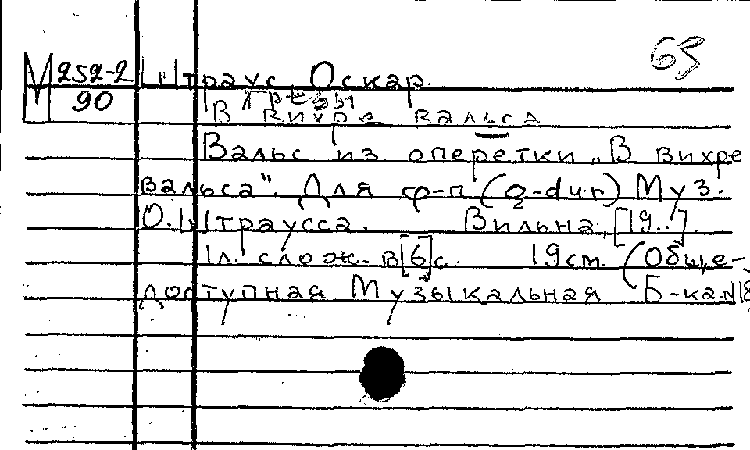 65
М 252-2 Штраус Оскар
90 Грезы
В вихре вальса
Вальс из оперетки „В вихре
вальса". Для ф-п (g-dur) Муз.
О. Штраусса. Вильна, [19..].
1л. слож. в [6] с. 19см. (Обще-
доступная Музыкальная Б-ка №